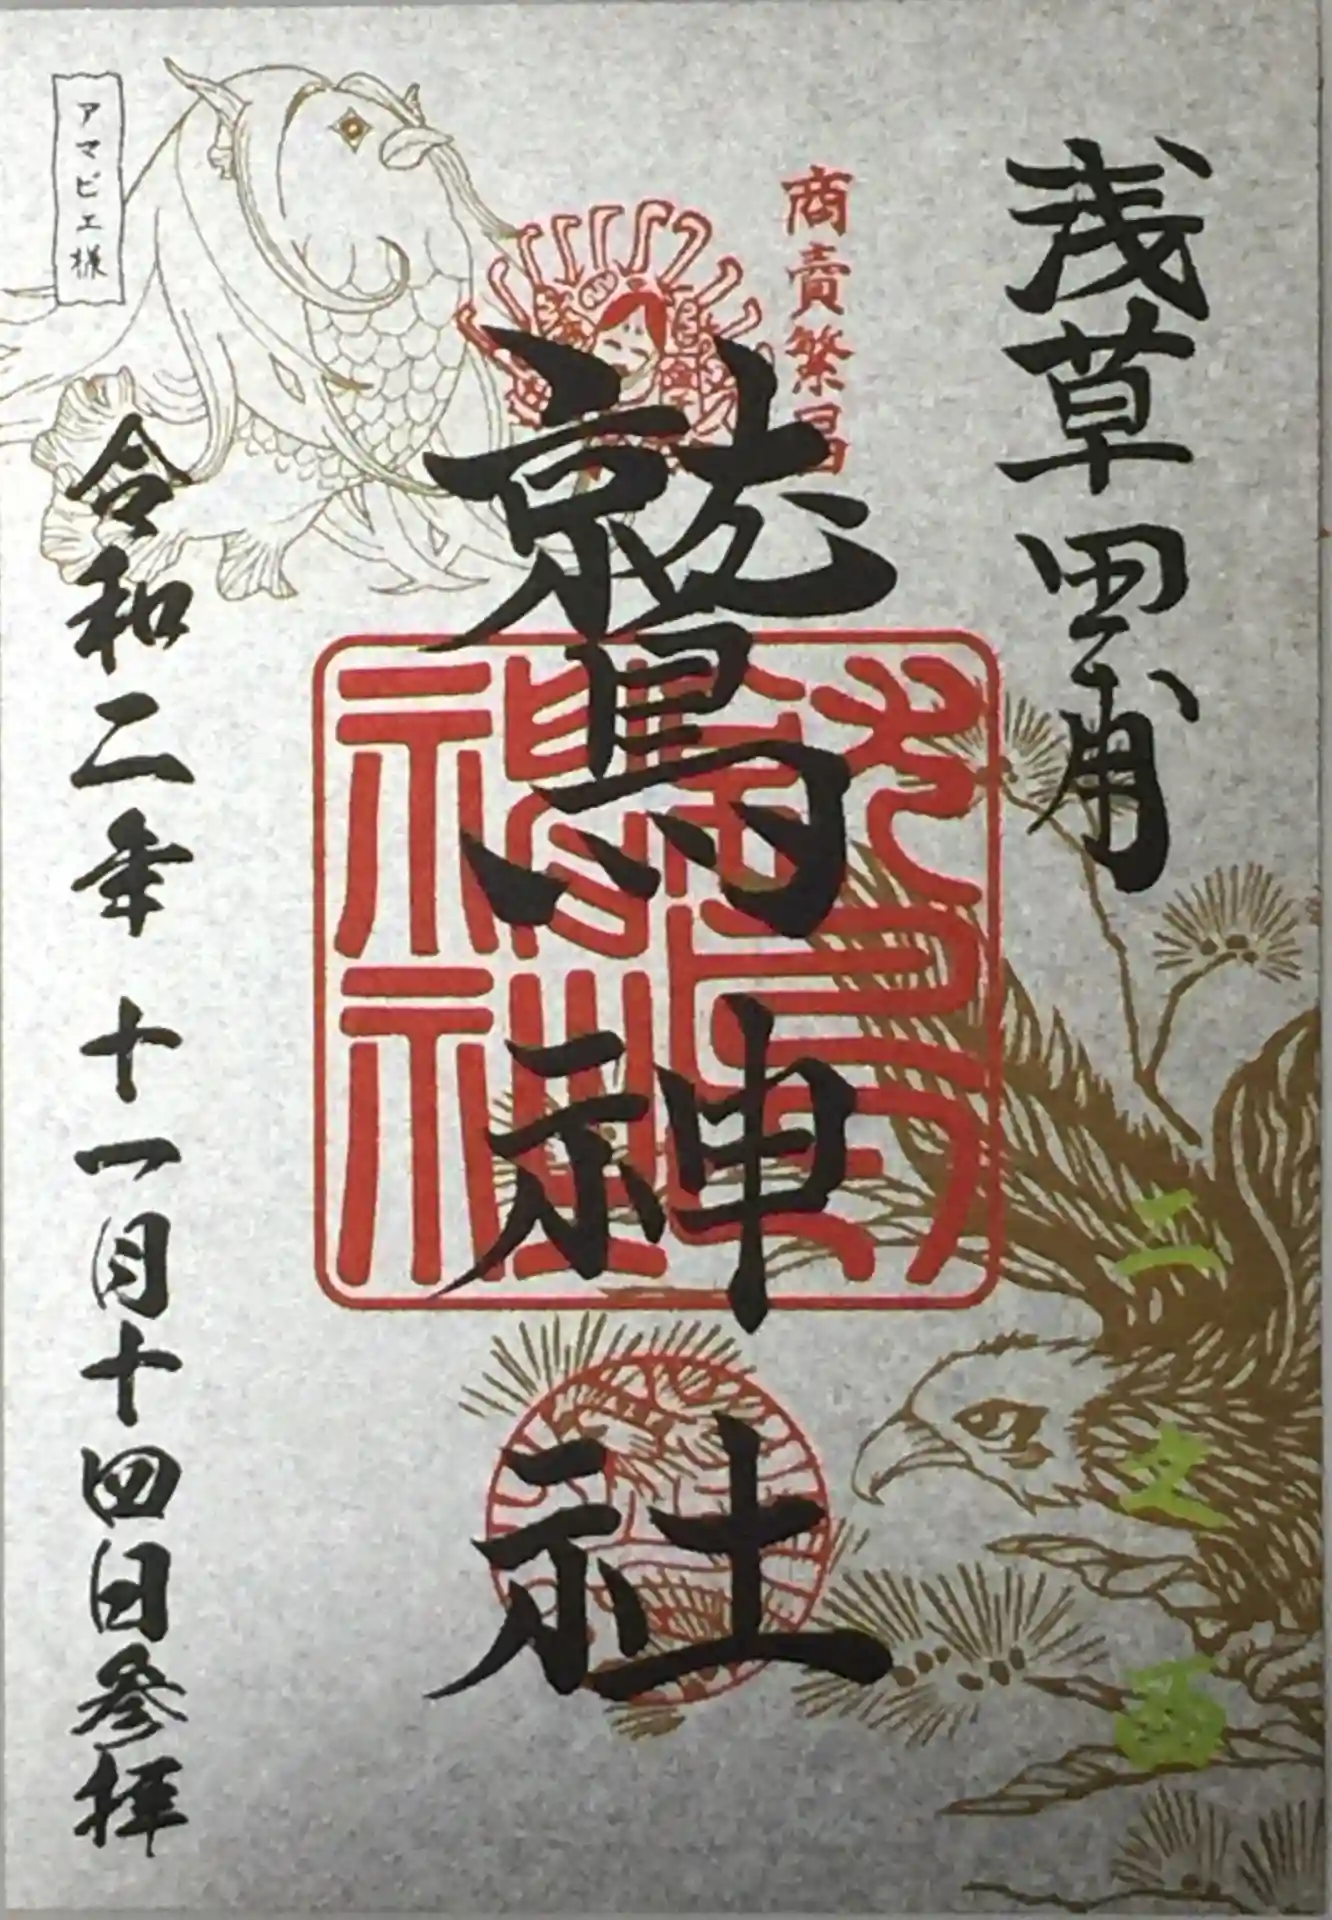 浅草田甫
二之酉
商賣繁昌
鷲神社
令和二年十一月十四日参拝
アマビエ様